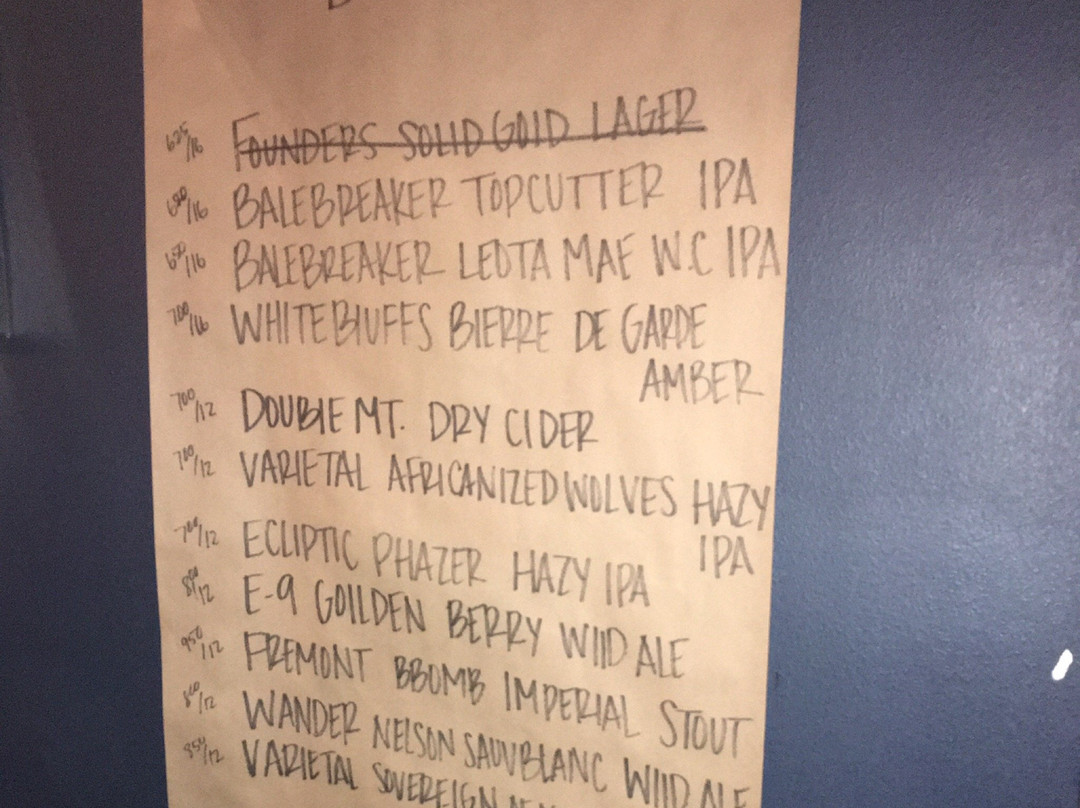 625/16 FOUNDERS SOLID GOLD LAGER
650/16 BALEBREAKER TOPCUTTER IPA
650/16 BALEBREAKER LEOTA MAE W.C IPA
700/16 WHITEBLUFFS BIERRE DE GARDE
AMBER
700/12 DOUBLE MT. DRY CIDER
700/12 VARIETAL AFRICANIZED WOLVES HAZY
IPA
700/12 ECLIPTIC PHAZER HAZY IPA
800/12 E-9 GOILDEN BERRY WILD ALE
950/12 FREMONT BBOMB IMPERIAL STOUT
800/12 WANDER NELSON SAUVBLANC WILD ALE
850/12 VARIETAL SOVEREIGN